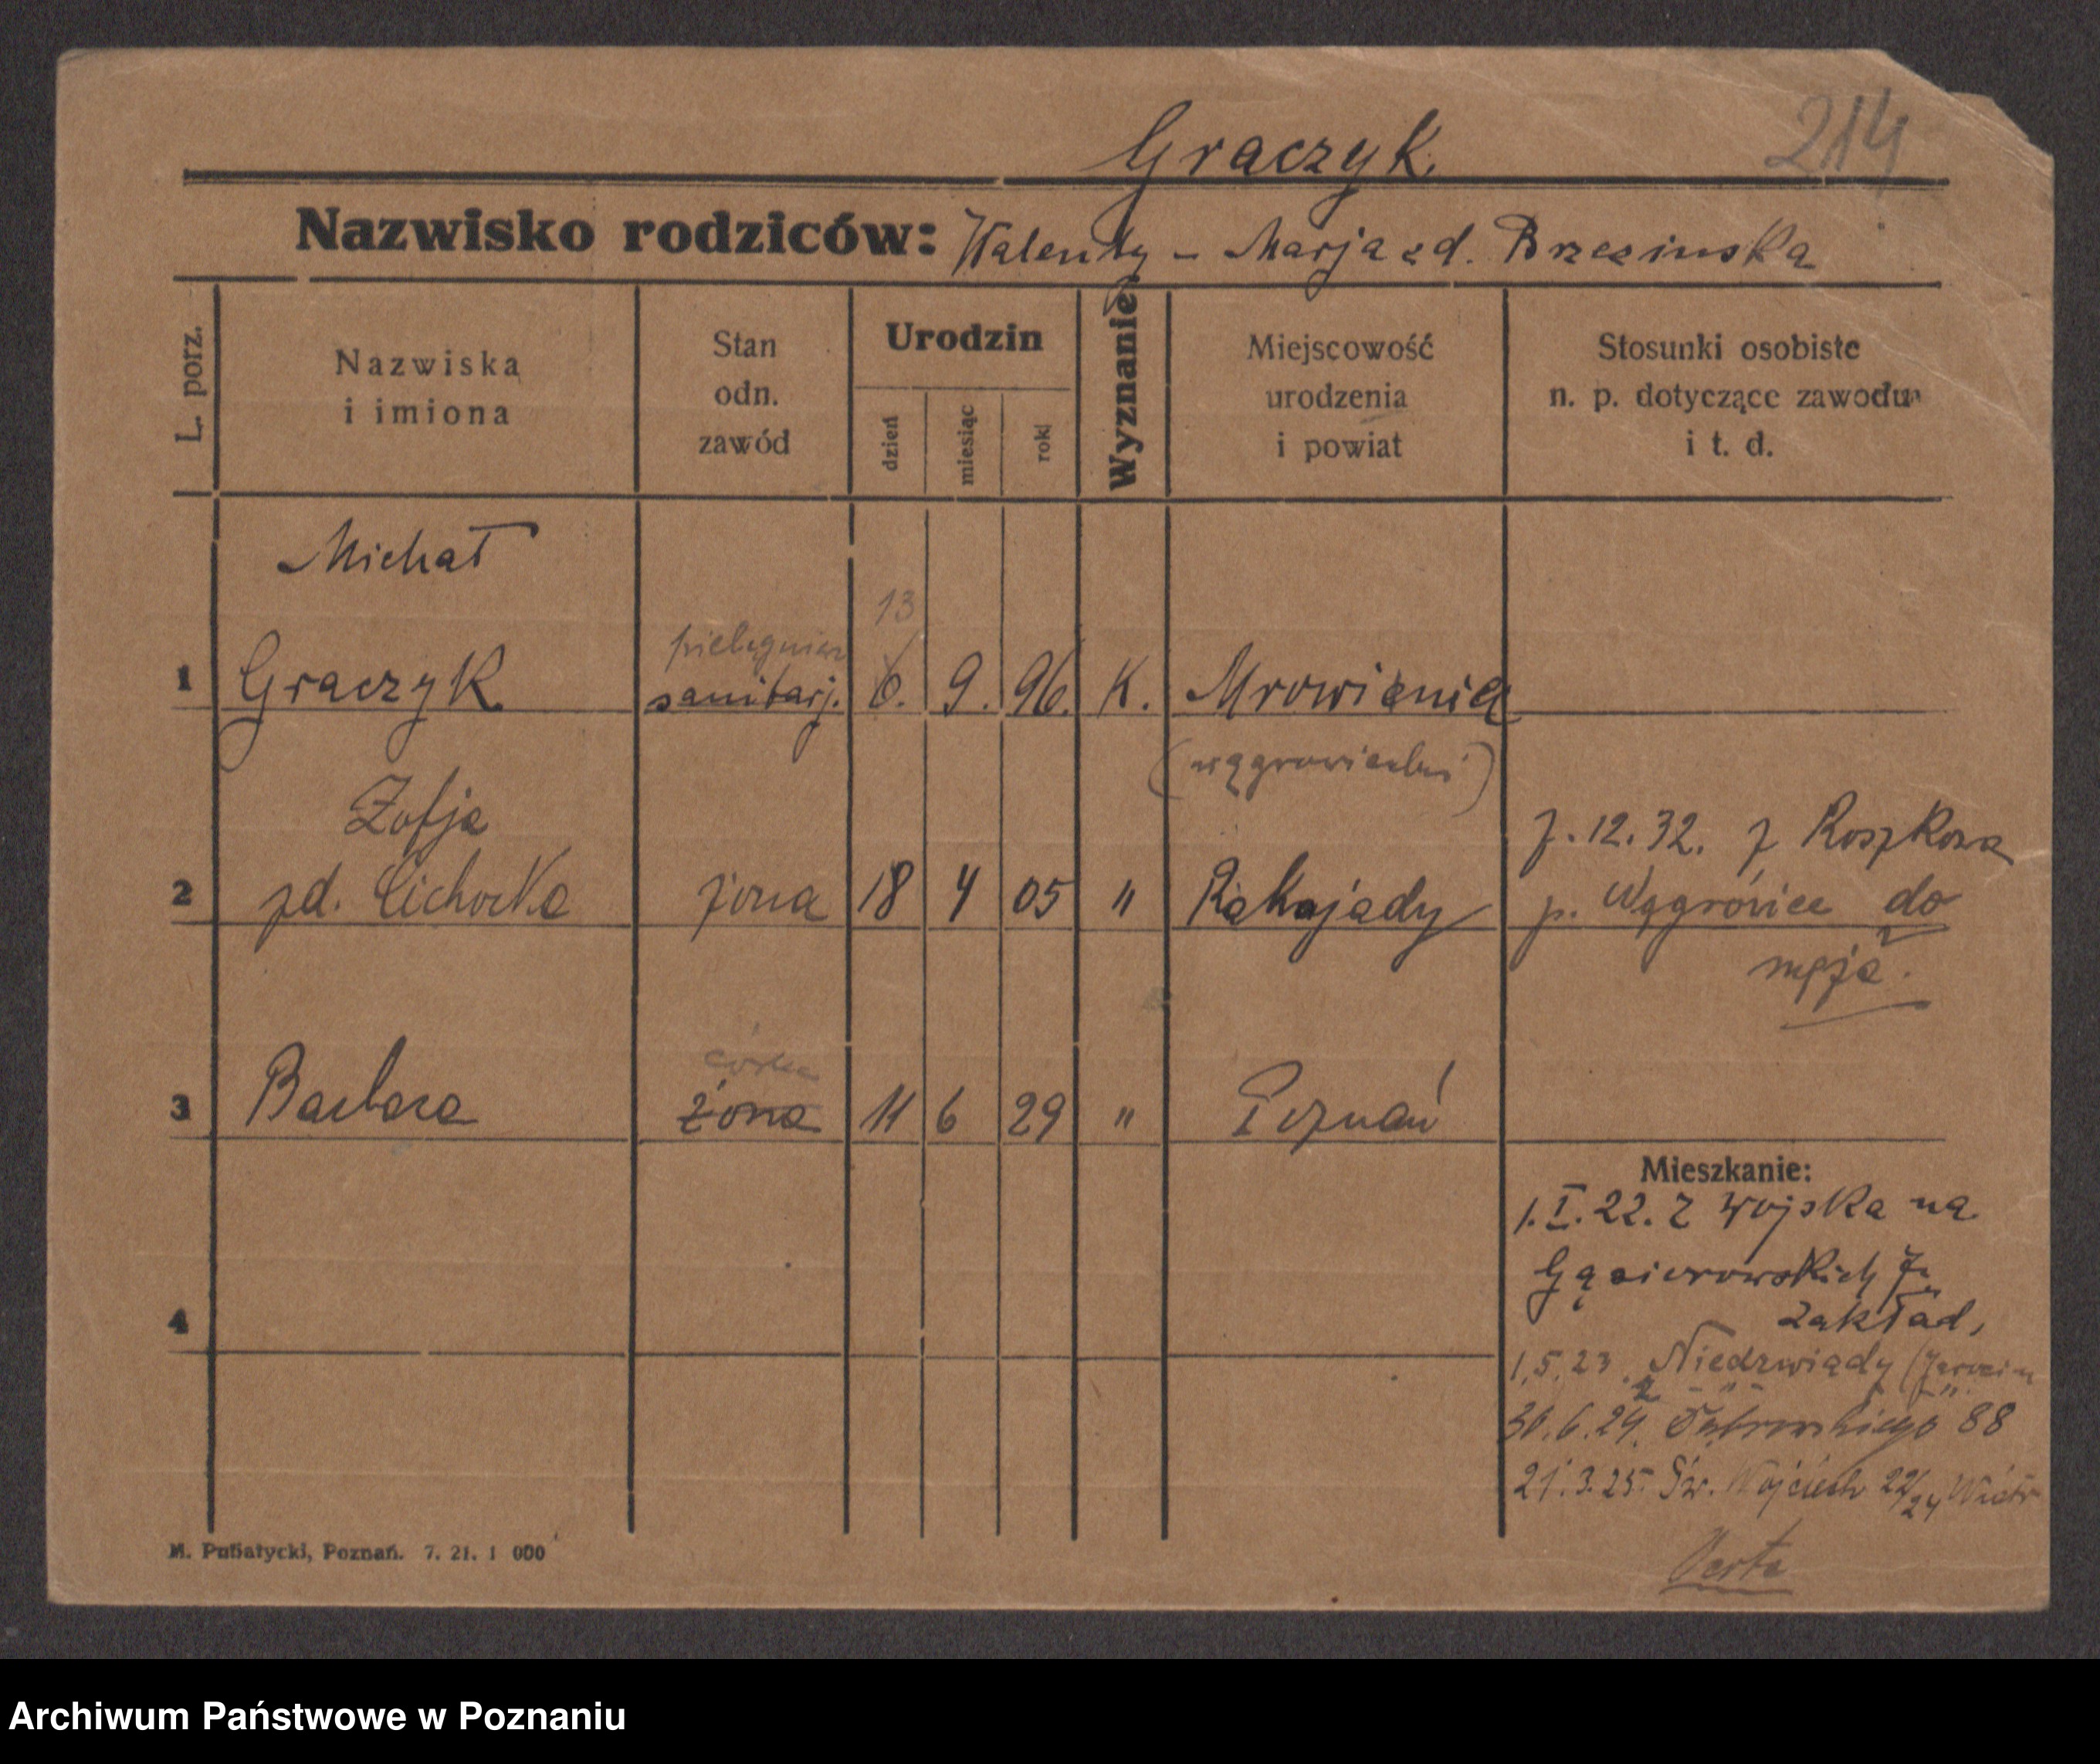 Graczyk.
214
Nazwisko rodziców: Walenty – Marja zd. Brzezinska
L. porz.
Nazwiska
i imiona
Stan
odn.
zawód
Urodzin
dzień
miesiąc
rok
Wyznanie
Miejscowość
urodzenia
i powiat
Stosunki osobiste
n. p. dotyczące zawodu
i t. d.
Michał
13
pielęgniarz
1 Graczyk sanitarj. 6. 9. 96. K. Mrowienia
(wągrowiecki)
Zofja
7.12.32. z Roszkowa
2 zd. Cichocka żona 18 4 05 " Rakojady p. Wągrówiec do
męża.
córka
3 Barbara żona 11 6 29 " Poznań
Mieszkanie:
1.I.22. z wojska na
Gąsiorowskich 7.
zakład,
4
1.5.23. Niedzwiady (Jarocin
z – " – "
30.6.24. Dąbrowskiego 88
21.3.25. Św. Wojciech 22/24
Verte
M. Pubatycki, Poznań. 7. 21. 1 000
Archiwum Państwowe w Poznaniu